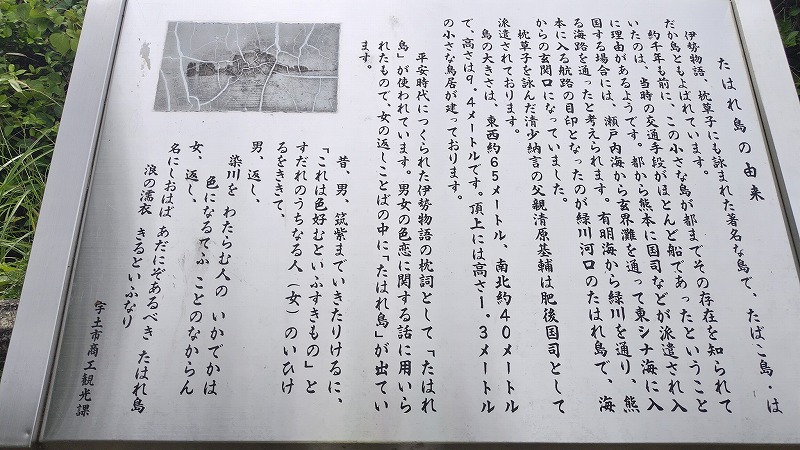 たはれ島の由来
伊勢物語、枕草子にも詠まれた著名な島で、たばこ島・は
だか島ともよばれています。
約千年も前に、この小さな島が都までその存在を知られて
いたのは、当時の交通手段がほとんど船であったということ
に理由があるようです。都から熊本に国司などが派遣され入
国する場合には、瀬戸内海から玄界灘を通って東シナ海に入
る海路を通ったと考えられます。有明海から緑川を通り、熊
本に入る航路の目印となったのが緑川河口のたはれ島で、海
からの玄関口になっていました。
枕草子を詠んだ清少納言の父親清原基輔は肥後国司として
派遣されております。
島の大きさは、東西約65メートル、南北約40メートル
で、高さは9.4メートルです。頂上には高さ1.3メートル
の小さな鳥居が建っております。
平安時代につくられた伊勢物語の枕詞として「たはれ
島」が使われています。男女の色恋に関する話に用いら
れたもので、女の返しことばの中に「たはれ島」が出てい
ます。
昔、男、筑紫までいきたりけるに、
「これは色好むといふすきもの」と
すだれのうちなる人（女）のいひけ
るをききて、
男、返し、
染川を わたらむ人の いかでかは
色になるてふ ことのなからん
女、返し、
名にしおはば あだにぞあるべき たはれ島
浪の濡衣 きるといふなり
宇土市商工観光課